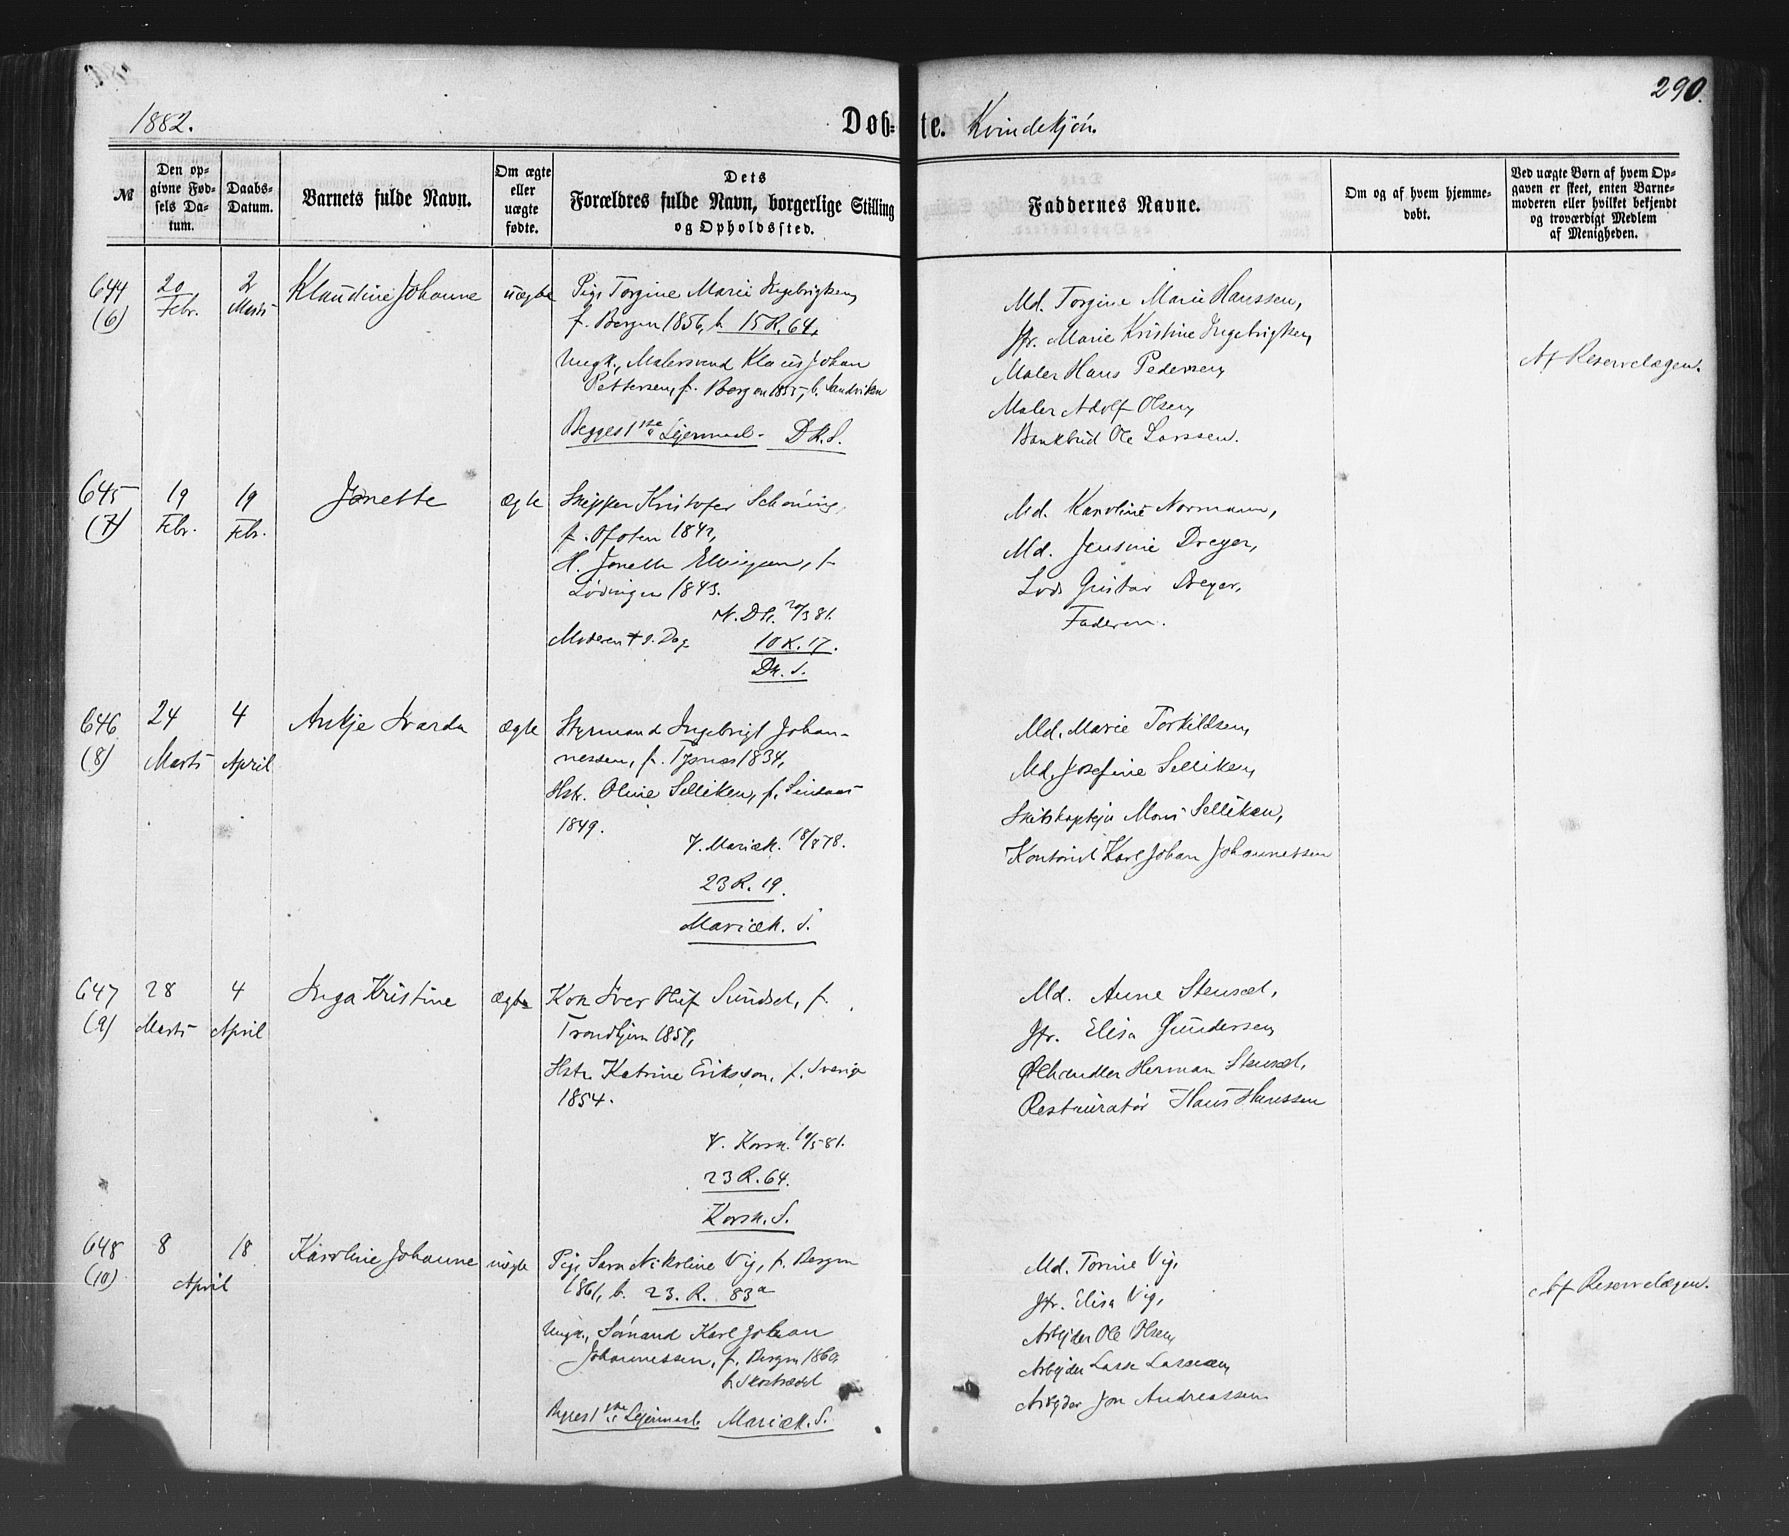 290.
1882.
Døb-te. Kvindekjøn.
№
Den opgivne Fødsels Datum.
Daabs-Datum.
Barnets fulde Navn.
Om ægte eller uægte fødte.
Dets Forældres fulde Navn, borgerlige Stilling og Opholdssted.
Faddernes Navne.
Om og af hvem hjemmedøbt.
Ved uægte Børn af hvem Opgaven er skeet, enten Barnemoderen eller hvilket bekjendt og troværdigt Medlem af Menigheden.
644
(6)
20
Febr.
2
Marts
Klaudine Johanne
uægte
Pige Torgine Marie Ingebrigtsen,
f. Bergen 1856, b. 15 R. 64,
Ungk., Malersvend Klaus Johan
Pettersen, f. Bergen 1855, b. Sandviken
Begges 1ste Lejermaal. DK. S.
Md. Torgine Marie Hanssen,
Jfr. Marie Kristine Ingebrigtsen,
Maler Hans Pedersen,
Maler Adolf Olsen,
Bankbud Ole Larssen.
Af Reservelægen.
645
(7)
19
Febr.
19
Febr.
Jonette
ægte
Skipper Kristofer Schöning,
f. Ofoten 1842,
H. Jonette Ellingsen, f.
Lödingen 1843.
N. DK. 20/3 81.
Moderen † s. Dag
10 R. 17.
Dk. S.
Md. Karoline Normann,
Md. Jensine Dreyer,
Lods Gustav Dreyer,
Faderen.
646
(8)
24
Marts
4
April
Antje Svarda
ægte
Styrmand Ingebrigt Johannessen, f. Tysnes 1834,
Hstr. Oline Selliken, f. Lindaas
1849.
V. Mariæk. 18/8 78.
23 R. 19.
Mariæk. S.
Md. Marie Torkildsen,
Md. Josefine Selliken,
Skibskaptejn Mons Selliken,
Kontorist Karl Johan Johannessen
647
(9)
28
Marts
4
April
Inga Kristine
ægte
Kok Iver Oluf Sundset, f.
Trondhjem 1857,
Hstr. Katrine Eriksson, f. Sverige
1854.
V. Korsk. 10/5 81.
23 R. 64.
Korsk. S.
Md. Anne Stenset,
Jfr. Elisa Gundersen,
Ølhandler Herman Stenset,
Restauratør Hans Hanssen
648
(10)
8
18
April
Karoline Johanne
uægte
Pige Sara Nikoline Vig, f. Bergen
1861, b. 23. R. 83a
Ungk., Sömand Karl Johan
Johannessen, f. Bergen 1860,
b. Skostrædet
Begges 1ste Lejermaal. Mariæk. S.
Md. Torine Vig,
Jfr. Elisa Vig,
Arbejder Ole Olsen,
Arbejder Lasse Lassesen,
Arbejder Jon Andreassen
Af Reservelægen.